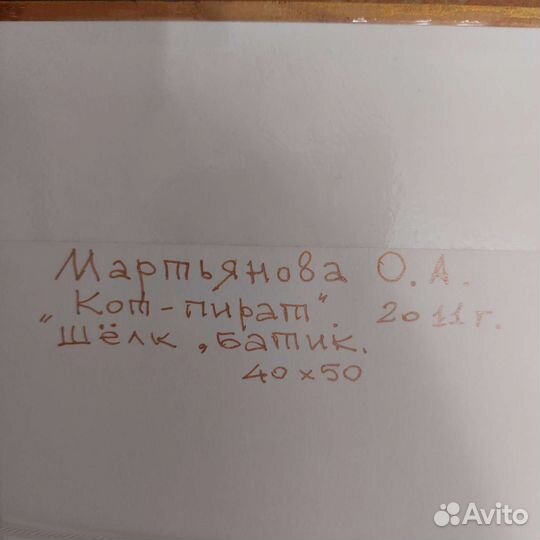 Мартьянова О.А.
„Кот-пират". 2011г.
Шёлк, батик.
40х50
Avito